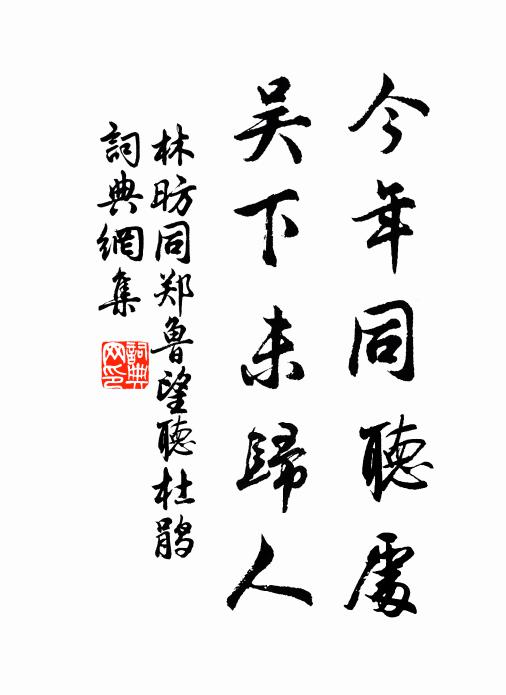 今年同聽處
吴下未歸人
林昉同郑魯望聽杜鹃
詞典網集
詞典网印